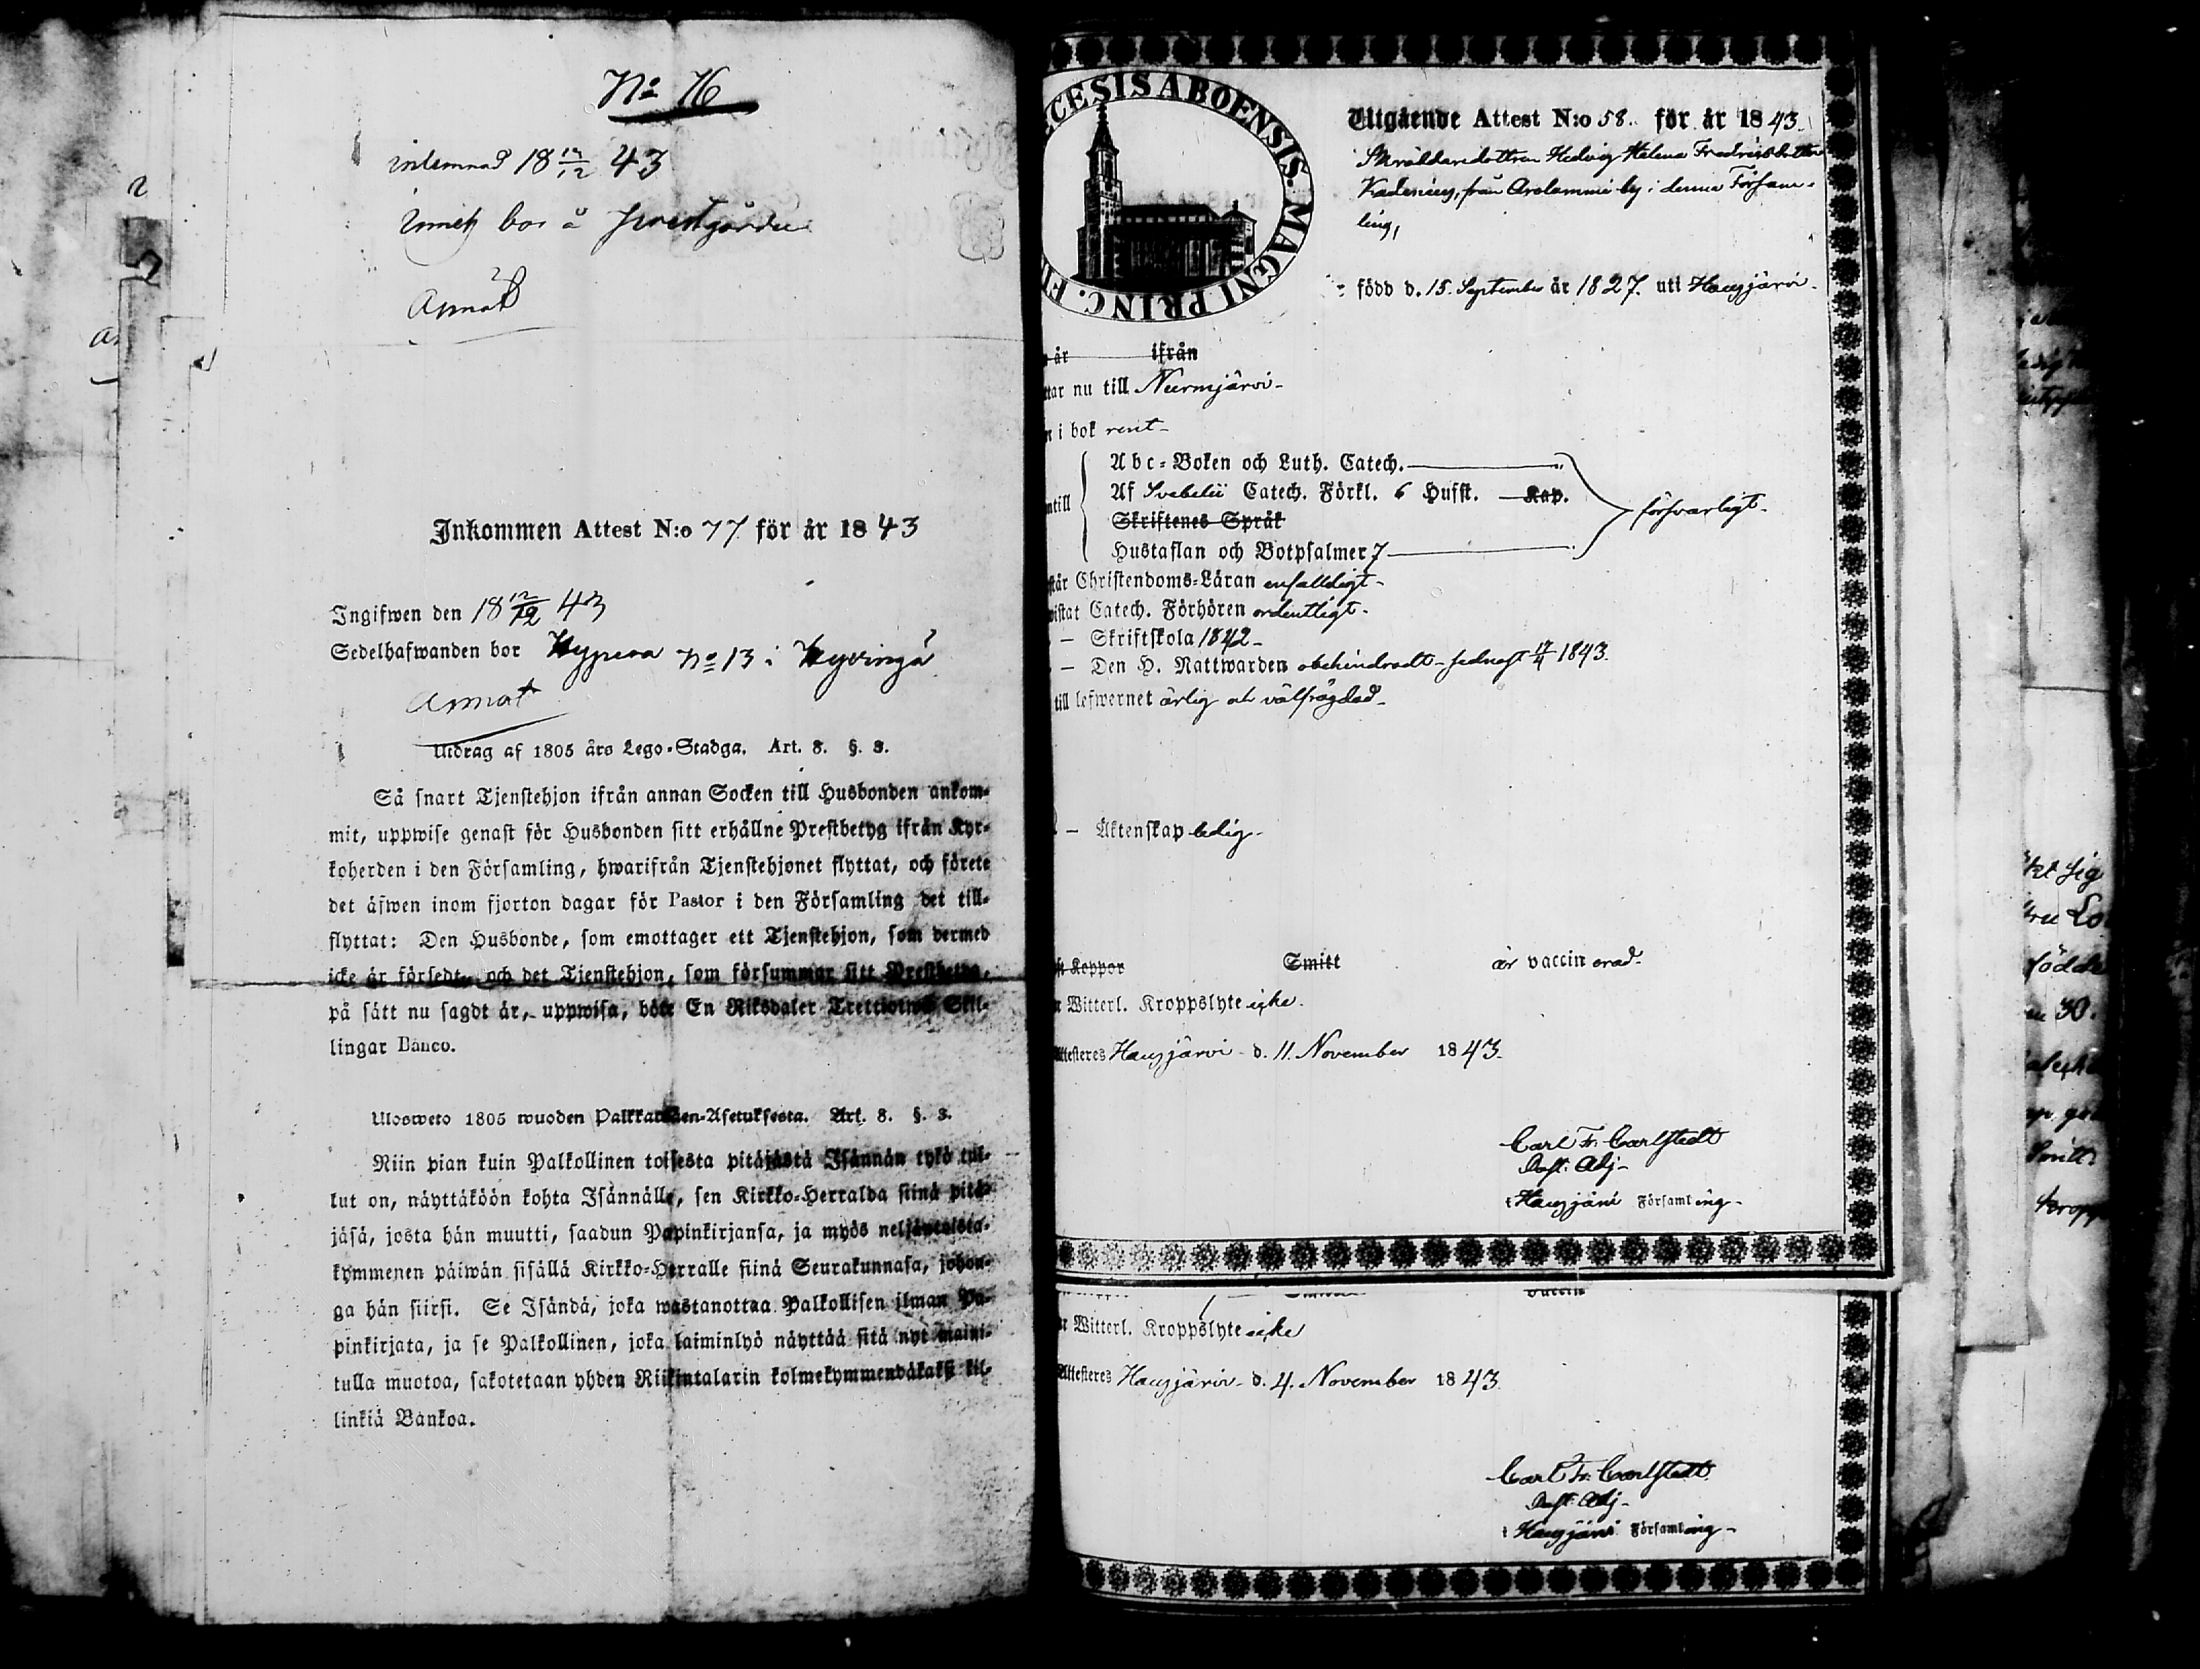 No 76
inlemnad 18 12/12 43
bor å prestgården
Annot
Inkommen Attest N:o 77 för år 1843
Ingifwen den 18 12/12 43
Sedelhafwanden bor No 13 i Hyvingå
Annot
Utdrag af 1805 års Lego-Stadga. Art. 8. §. 3.
Så snart Tjenstehjon ifrån annan Socken till Husbonden ankom-
mit, uppwise genast för Husbonden sitt erhållne Prestbetyg ifrån Kyr-
koherden i den Församling, hwarifrån Tjenstehjonet flyttat, och förete
det äfwen inom fjorton dagar för Pastor i den Församling det till-
flyttat: Den Husbonde, som emottager ett Tjenstehjon, som dermed
icke är försedt, och det Tjenstehjon, som försummar sitt Prestbetyg,
på sätt nu sagdt är, uppwisa, böte En Riksdaler Trettiotwå Skil-
lingar Banco.
Ulosweto 1805 wuoden Palkkawäen-Asetuksesta. Art. 8. §. 3.
Niin pian kuin Palkollinen toisesta pitäjästä Isännän tykö tul-
lut on, näyttäköön kohta Isännälle, sen Kirkko-Herralda siinä pitä-
jäsä, josta hän muutti, saadun Papinkirjansa, ja myös neljäntoista-
kymmenen päiwän sisällä Kirkko-Herralle siinä Seurakunnasa, johon-
ga hän siirsi. Se Isändä, joka wastanottaa Palkollisen ilman Pa-
pinkirjata, ja se Palkollinen, joka laiminlyö näyttää sitä nyt maini-
tulla muotoa, sakotetaan yhden Riikintalarin kolmekymmendäkaksi kil-
linkiä Bankoa.
CESIS ABOENSIS. MAGNI PRINC. FI
Utgående Attest N:o 58. för år 1843.
Skräddaredottren Hedvig Helena Fredricsdotter
från Arolammi by i denna Försam-
ling,
född d. 15. September år 1827. uti Hausjärvi.
år ifrån
ttar nu till Nurmjärvi-
i bok rent-
Abc-Boken och Luth. Catech.
Af Svebelii Catech. Förkl. 6 Hufst. Kap.
ntill
försvarligt-
Skriftenes Språk
Hustaflan och Botpsalmer 7
står Christendoms-Läran enfalldigt-
wistat Catech. Förhören ordentligt-
- Skriftskola 1842-
- Den H. Nattwarden obehindradt-sednast 17/4 1843.
till lefwernet ärlig och välfrägdad-
- Äktenskap ledig-
Koppor Smitt är vaccinerad-
Witterl. Kroppslyte icke.
Attesteres Hausjärvi- d. 11. November 1843.
Carl Fr. Carlstedt
Past: Adj-
i Hausjärvi Församling-
vaccin
Witterl. Kroppslyte icke
Attesteres Hausjärvi- d. 4. November 1843.
Carl Fr. Carlstedt
Past: Adj-
i Hausjärvi Församling-